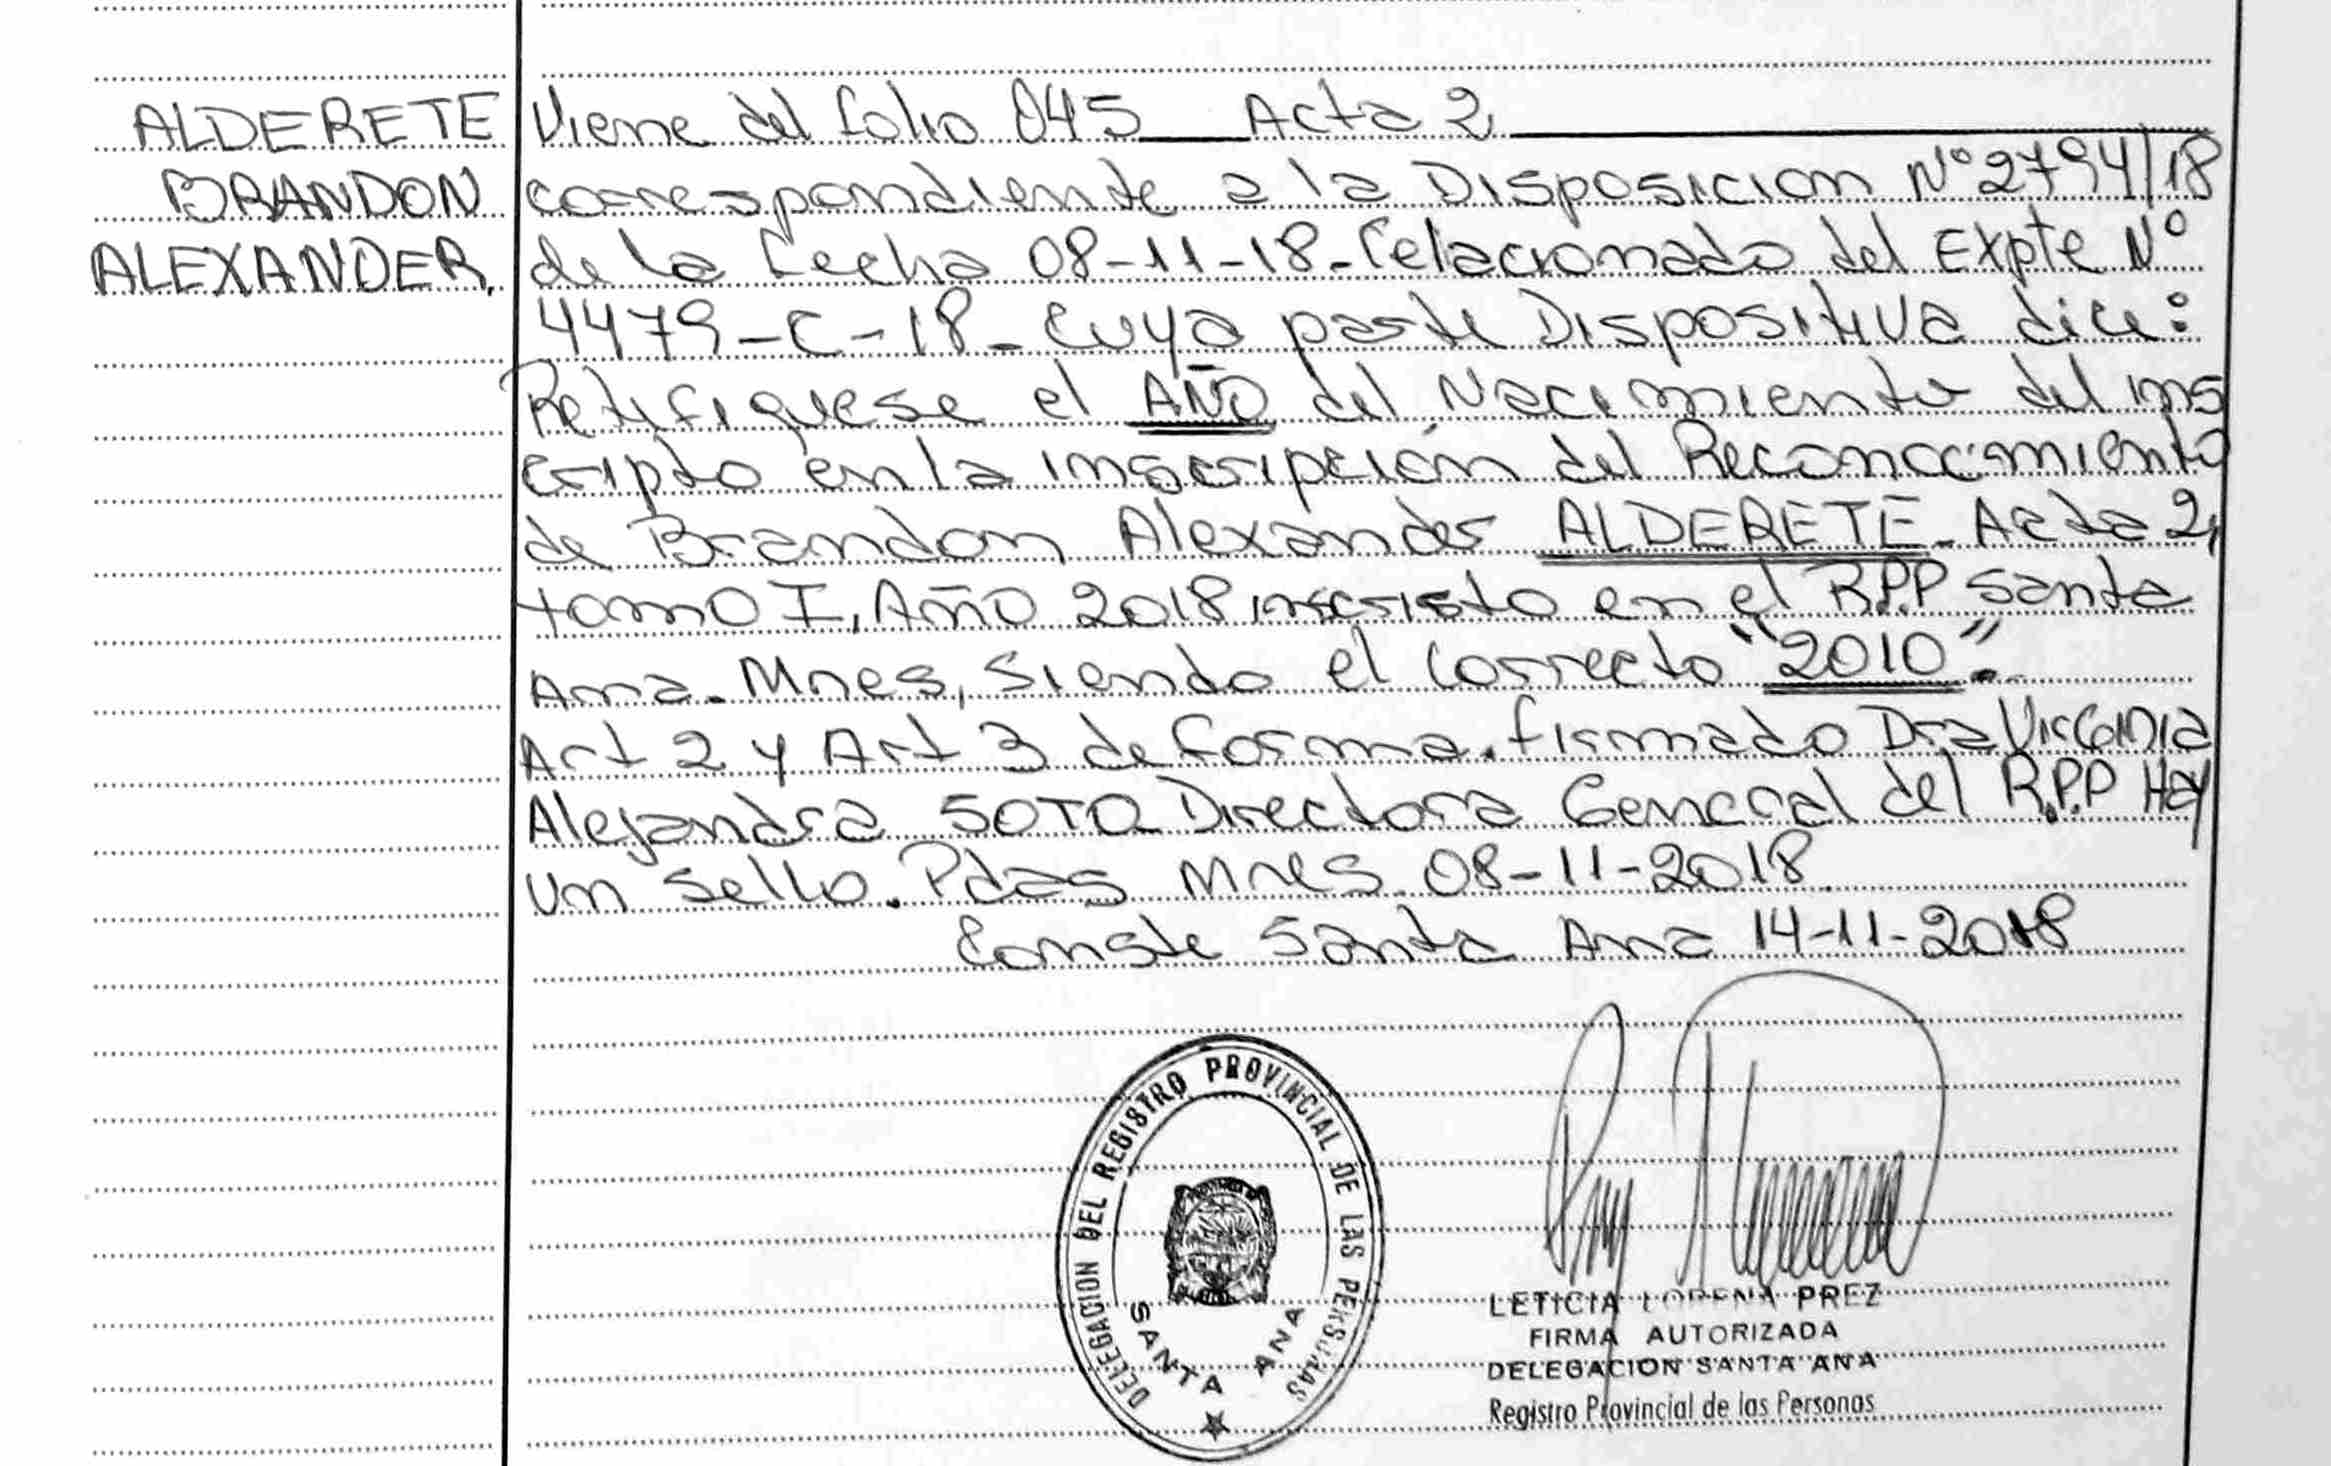 ALDERETE
BRANDON
ALEXANDER.
Viene del folio 045 Acta 2
correspondiente a la Disposicion N° 2794/18
de la fecha 08-11-18- relacionado del Expte N°
4479-C-18- Cuya parte Dispositiva dice:
Retifiquese el AÑO del Nacimiento del ins
cripto en la inscripción del Reconocimiento
de Brandon Alexander ALDERETE. Acta 2,
tomo I, Año 2018 inscristo en el R.P.P Santa
Ana. Mnes, siendo el correcto "2010".
Art 2 y Art 3 de forma. firmado Dra Virginia
Alejandra SOTO Directora General del R.P.P Hay
un sello. Pdas Mnes. 08-11-2018
Conste Santa Ana 14-11-2018
DELEGACION DEL REGISTRO PROVINCIAL DE LAS PERSONAS
SANTA ANA
LETICIA LORENA PREZ
FIRMA AUTORIZADA
DELEGACION SANTA ANA
Registro Provincial de las Personas